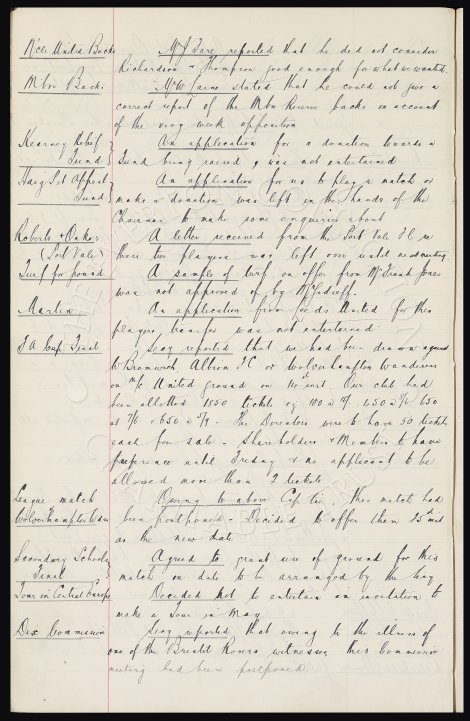 N'cle United Backs
Mr J Tare reported that he did not consider
Richardson & Thompson good enough for what we wanted.
Mbro Backs
Mr W Cains stated that he could not give a
correct report of the Mbro Reserve backs on account
of the very weak opposition
Kearney Relief Fund
An application for a donation towards a
Fund being raised was not entertained
Haig Set Appeal Fund
An application for us to play a match or
make a donation was left in the hands of the
Chairman to make some enquiries about
Roberts & Oakes
(Port Vale)
A letter received from the Port Vale F C re
these two players was left over until next meeting
Turf for ground
A sample of turf, on offer from Mr Frank Jones
was not approved of by
Martin
An application from Leeds United for this
players transfer was not entertained.
F A Cup Final
Secy reported that we had been drawn against
W Bromwich Albion F C or Wolverhampton Wanderers
on M/c United ground on 14th inst. Our club had
been allotted 1850 tickets
at
The Directors were to have 50 tickets
each for sale - Shareholders & Members to have
preference until Friday & no applicant to be
allowed more than 2 tickets
League match
Wolverhampton Wan
Owing to above Cup tie, this match had
been postponed - Decided to offer them
as the new date
Secondary Schools
Final
Agreed to grant use of ground for this
match on date to be arranged by the Secy
Tour in Central Europe
Decided not to entertain an invitation to
make a Tour in May
Dix Commission
Secy reported that owing to the illness of
one of the Bristol Rovers witnesses this Commission
meeting had been postponed